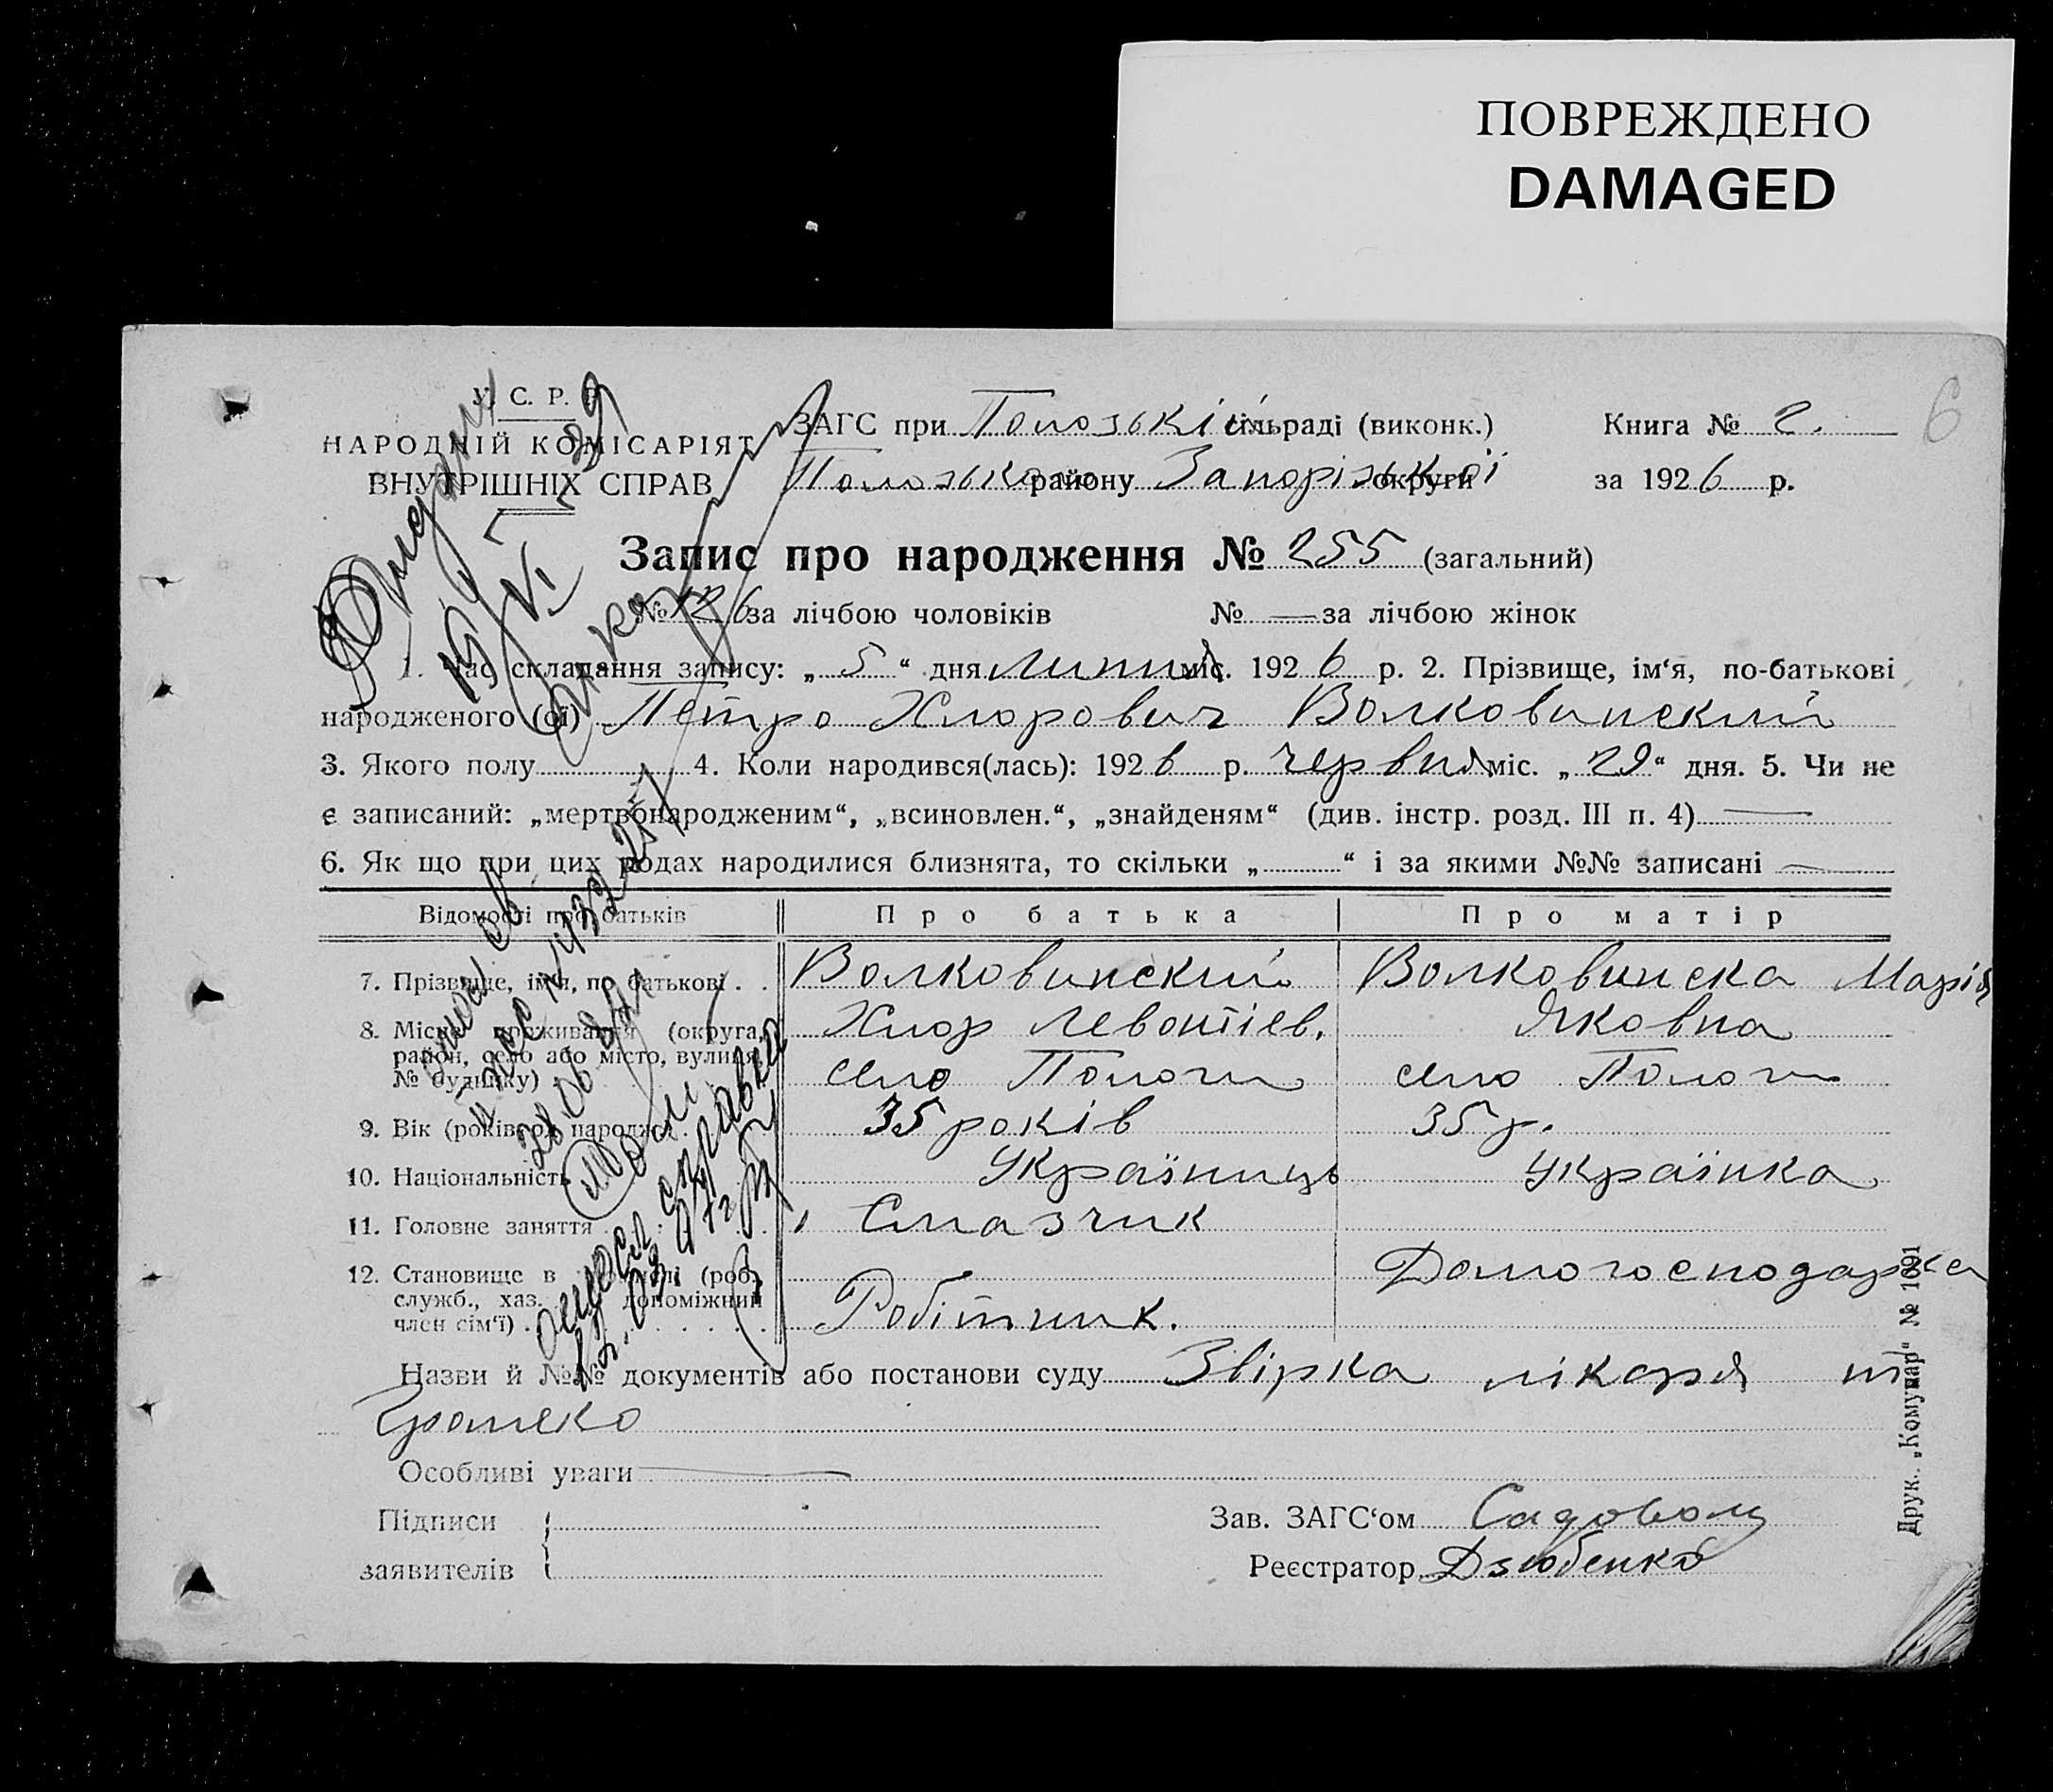 ПОВРЕЖДЕНО
DAMAGED
6
У. С. Р. Р.
НАРОДНІЙ КОМІСАРІЯТ
ВНУТРІШНІХ СПРАВ
ЗАГС при Полозькій сільраді (виконк.)
Полозького району Запорізької округи
Книга № 2.
за 1926 р.
Запис про народження № 255 (загальний)
№ 126 за лічбою чоловіків № — за лічбою жінок
1. Час складання запису: „ 5 “ дня липня міс. 1926 р. 2. Прізвище, ім‘я, по-батькові
народженого (ої) Петро Хлорович Волковинский
3. Якого полу 4. Коли народився(лась): 1926 р. червня міс. „ 29 “ дня. 5. Чи не
є записаний: „мертвонародженим“, „всиновлен.“, „знайденям“ (див. інстр. розд. III п. 4) —
6. Як що при цих родах народилися близнята, то скільки „ “ і за якими №№ записані —
Відомості про батьків Про батька Про матір
7. Прізвище, ім‘я, по батькові . . Волковинский Волковинска Марія
8. Місце проживання (округа, Хлор Левонтіев. Яковна
район, село або місто, вулиця, село Пологи село Пологи
№ будинку)
9. Вік (років од народж.) 35 років 35 р.
10. Національність Українець Українка
11. Головне заняття Смазчик
12. Становище в (роб., Домогосподарка
служб., хаз. допоміжний Робітник.
член сім‘ї)
Назви й №№ документів або постанови суду Звірка лікаря т
Громеко
Особливі уваги —
Підписи
заявителів
Зав. ЗАГС‘ом Садовой
Реєстратор Дзюбенко
Друк. „Комунар“ № 1691